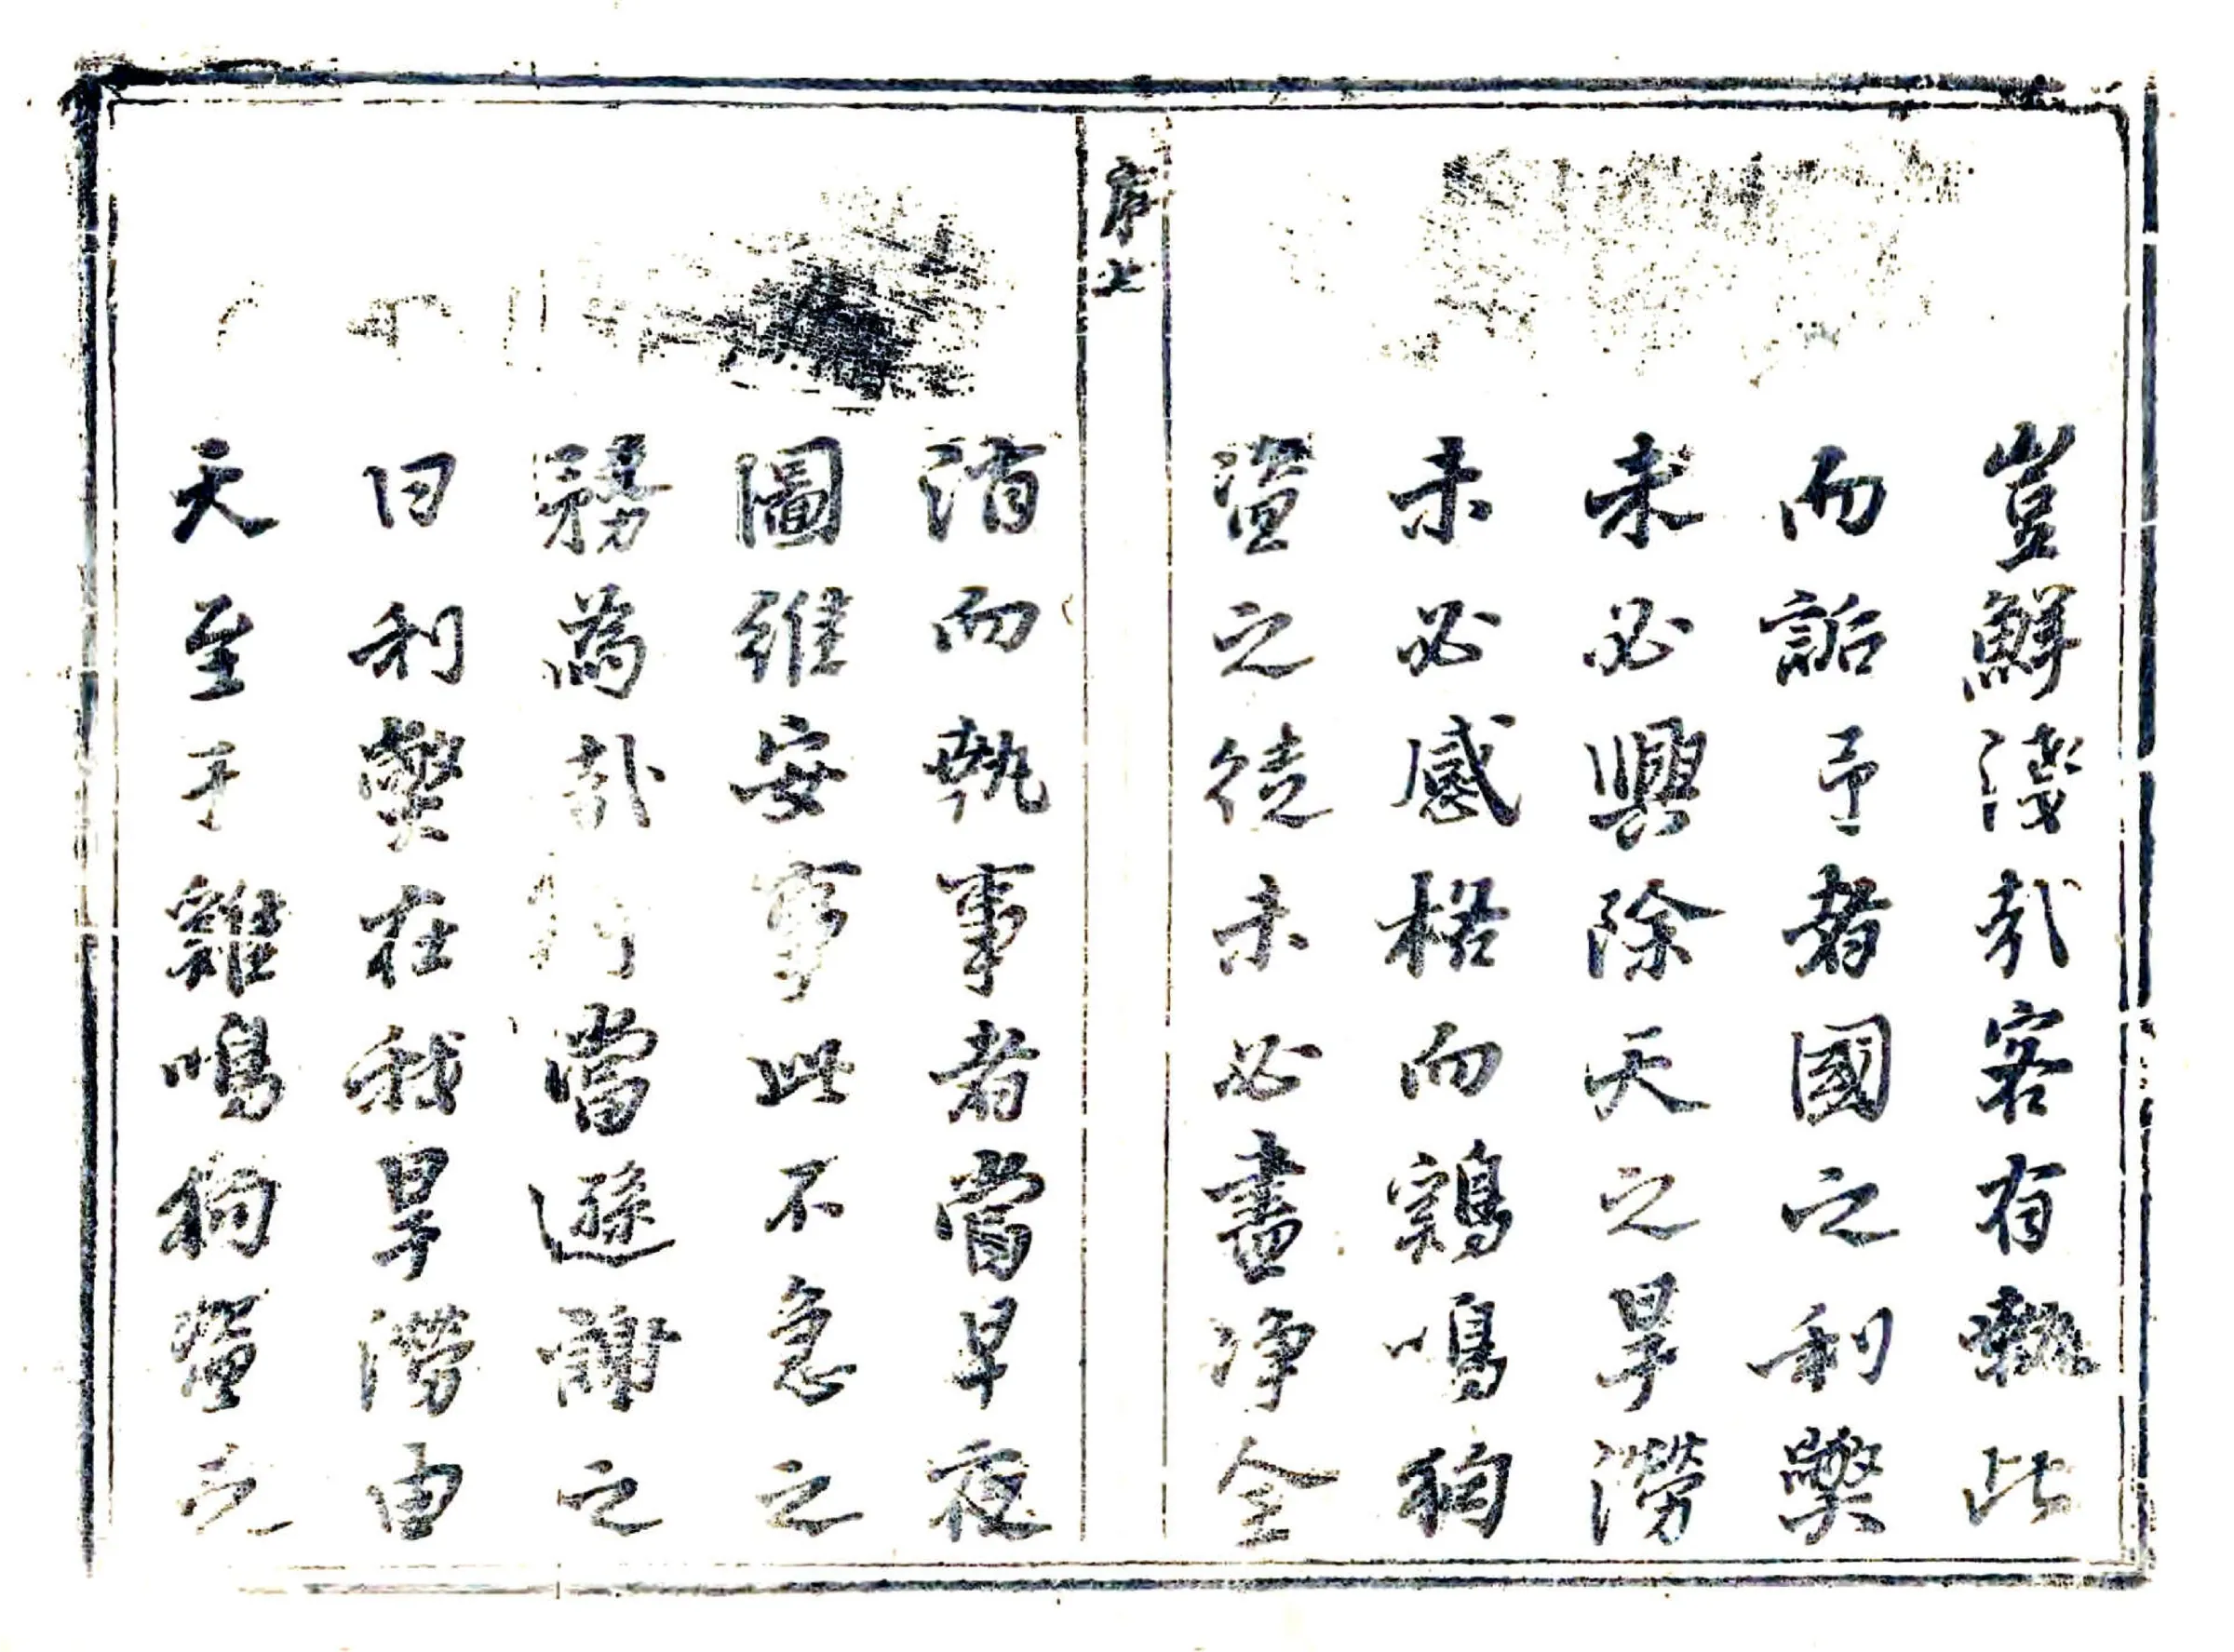 豈鮮淺哉客有執此
而詬予者國之利檠
未必興除天之旱澇
未必感格而鷄鳴狗
盜之徒未必盡淨全
序七
消而執事者當早夜
圖維安事此不急之
務為哉當遜謝之
曰利檠在我旱澇由
天至于雞鳴狗盜之